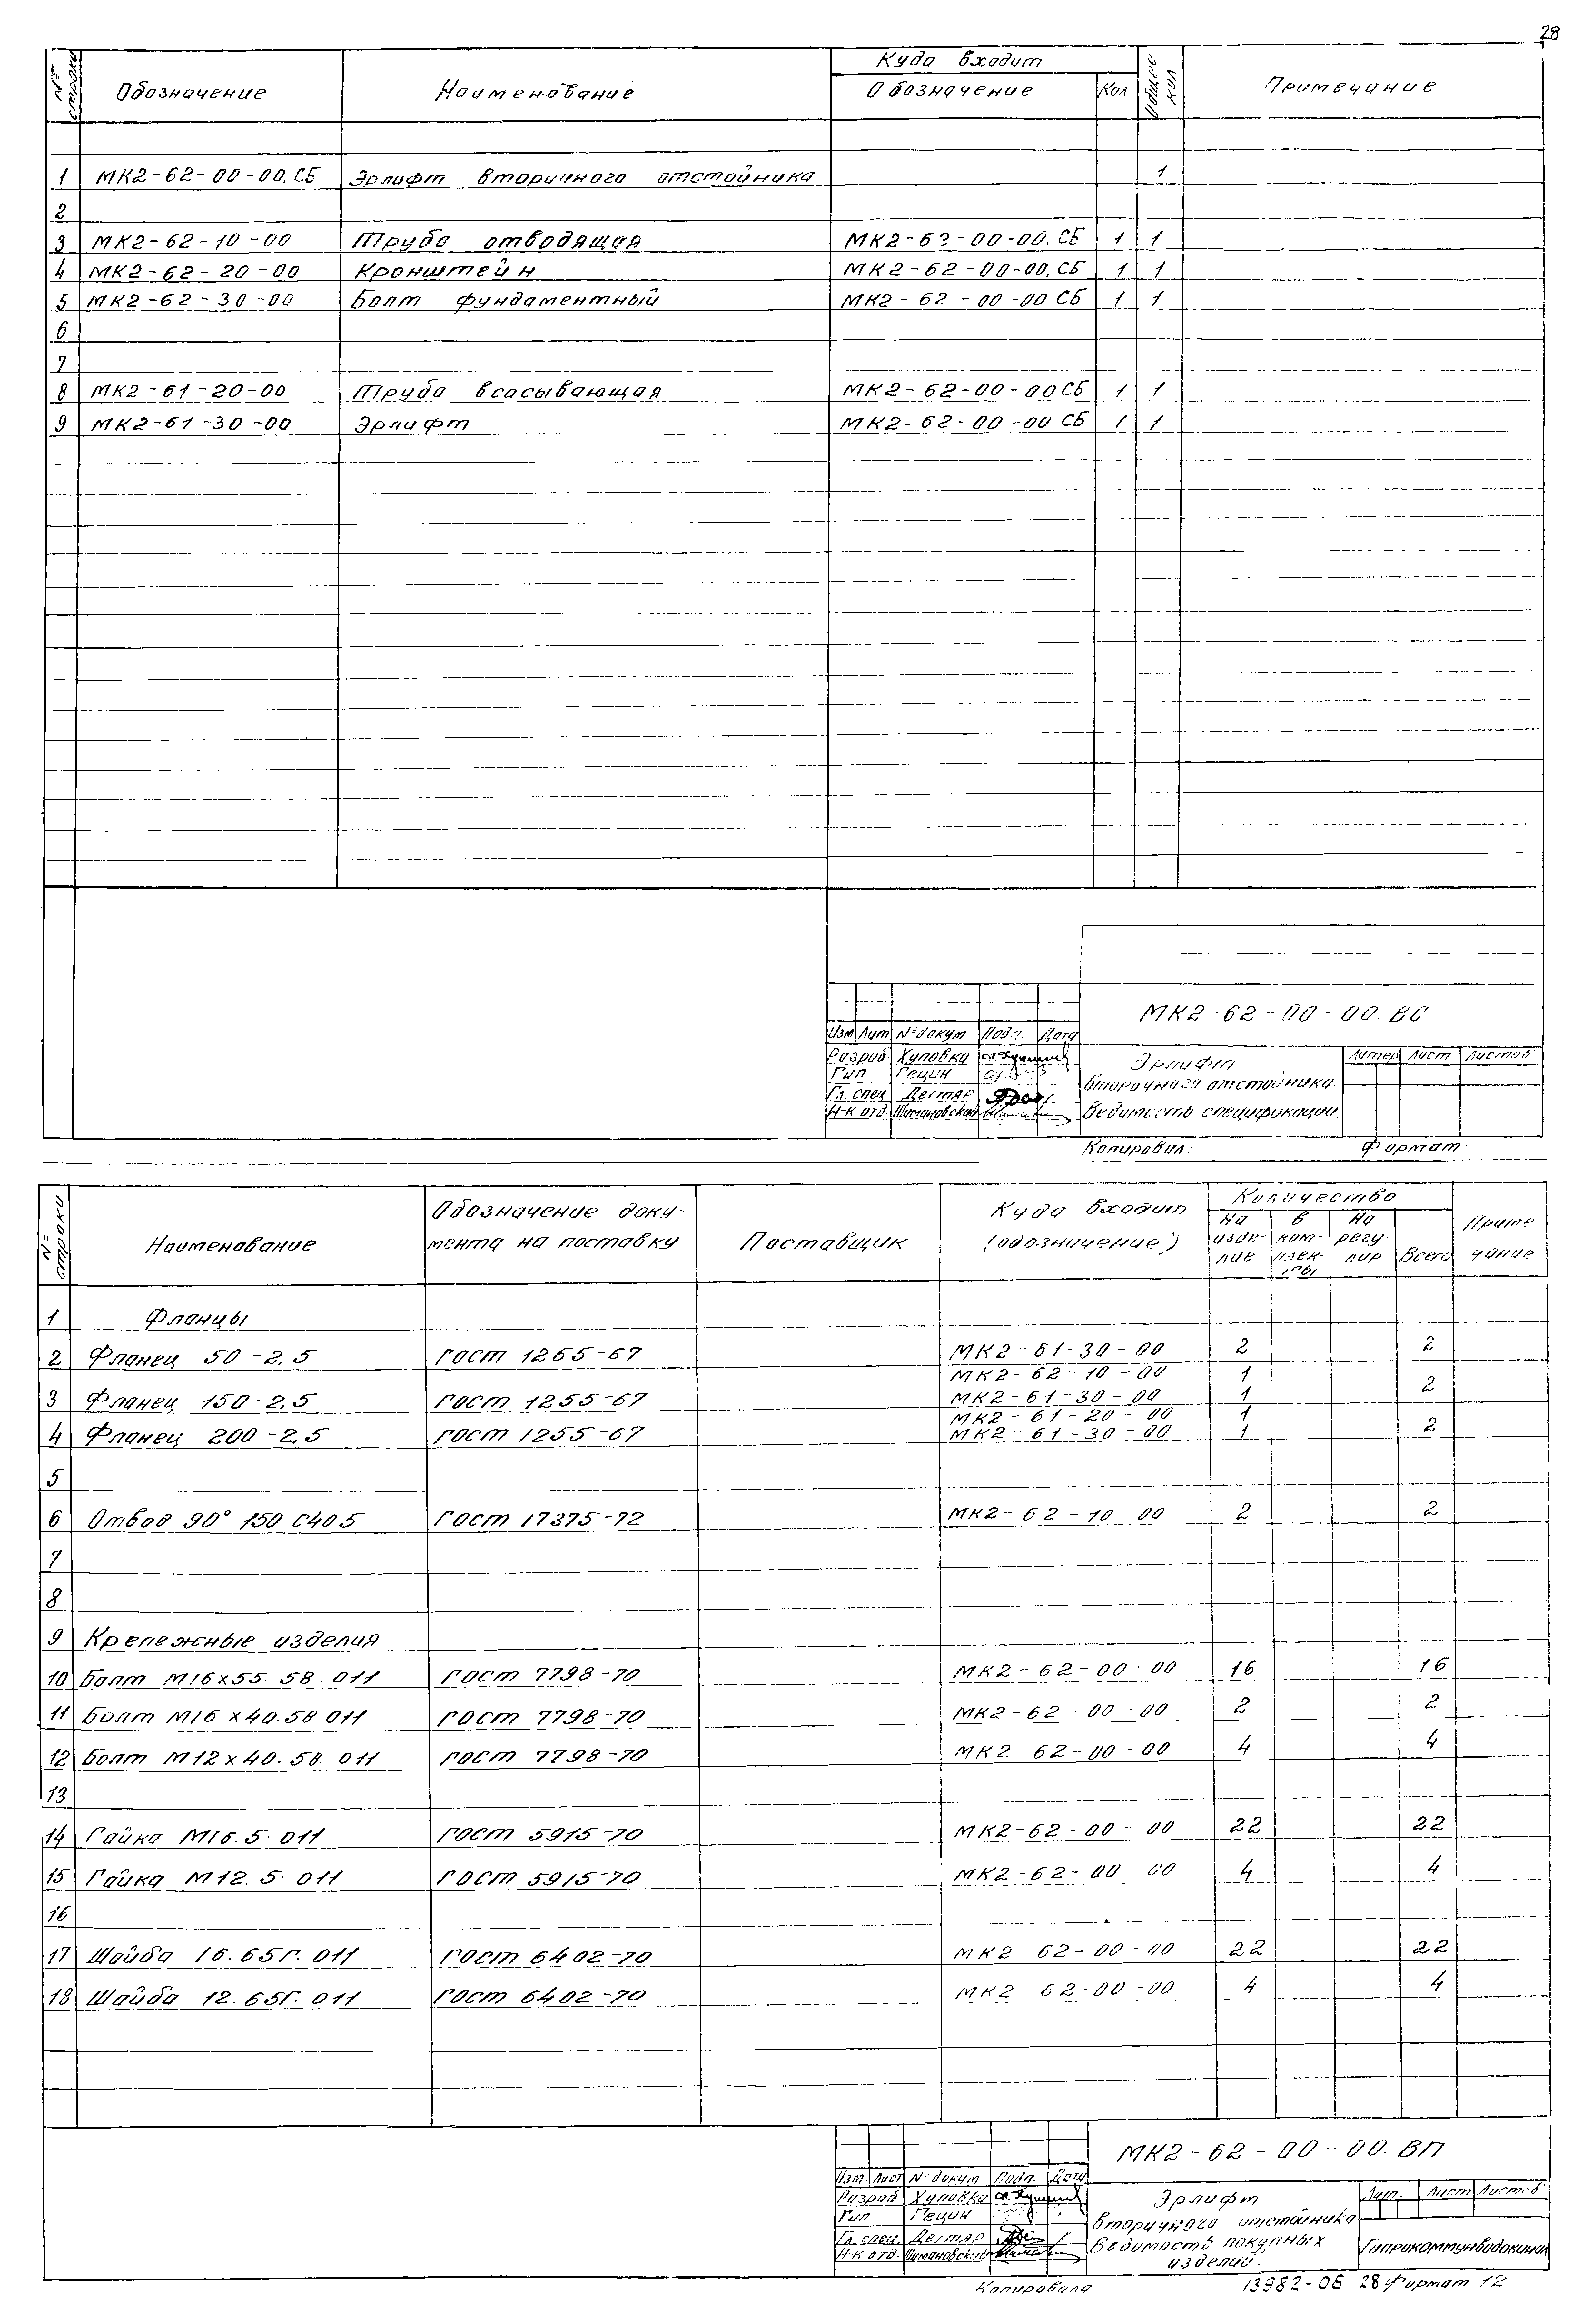 28
№ строки Обозначение Наименование Куда входит Общее кол Примечание
Обозначение Кол
1 МК2-62-00-00.СБ Эрлифт вторичного отстойника 1
2
3 МК2-62-10-00 Труба отводящая МК2-62-00-00.СБ 1 1
4 МК2-62-20-00 Кронштейн МК2-62-00-00.СБ 1 1
5 МК2-62-30-00 Болт фундаментный МК2-62-00-00 СБ 1 1
6
7
8 МК2-61-20-00 Труба всасывающая МК2-62-00-00 СБ 1 1
9 МК2-61-30-00 Эрлифт МК2-62-00-00 СБ 1 1
МК2-62-00-00.ВС
Изм Лит № докум Подп. Дата
Разраб Хуповка
Гип Гецин
Гл. спец Дегтяр
Н-к отд. Шумановский
Эрлифт
вторичного отстойника.
Ведомость спецификации.
Литер Лист Листов
Копировал: Формат
№ строки Наименование Обозначение доку-
мента на поставку Поставщик Куда входит
(обозначение) Количество Приме
чание
На
изде-
лие
в
ком-
плек-
ты
На
регу-
лир
Всего
1 Фланцы
2 Фланец 50-2,5 ГОСТ 1255-67 МК2-61-30-00 2 2
МК2-62-10-00 1
3 Фланец 150-2,5 ГОСТ 1255-67 МК2-61-30-00 1 2
МК2-61-20-00 1
4 Фланец 200-2,5 ГОСТ 1255-67 МК2-61-30-00 1 2
5
6 Отвод 90° 150 С40 5 ГОСТ 17375-72 МК2-62-10 00 2 2
7
8
9 Крепежные изделия
10 Болт М16х55.58.011 ГОСТ 7798-70 МК2-62-00-00 16 16
11 Болт М16х40.58.011 ГОСТ 7798-70 МК2-62-00-00 2 2
12 Болт М12х40.58.011 ГОСТ 7798-70 МК2-62-00-00 4 4
13
14 Гайка М16.5.011 ГОСТ 5915-70 МК2-62-00-00 22 22
15 Гайка М12.5.011 ГОСТ 5915-70 МК2-62-00-00 4 4
16
17 Шайба 16.65Г.011 ГОСТ 6402-70 МК2 62-00-00 22 22
18 Шайба 12.65Г.011 ГОСТ 6402-70 МК2-62-00-00 4 4
МК2-62-00-00.ВП
Изм. Лист № докум Подп. Дата
Разраб Хуповка
Гип Гецин
Гл. спец Дегтяр
Н-к отд. Шумановский
Эрлифт
вторичного отстойника
Ведомость покупных
изделий.
Лит. Лист Листов
Гипрокоммунводоканал
Копировала 13982-06 28 Формат 12